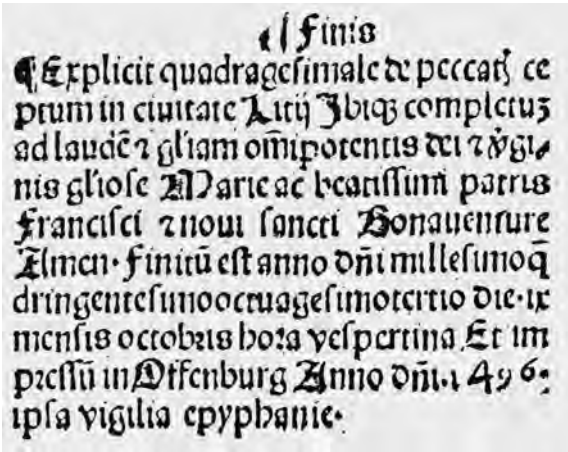 Finis
¶ Explicit quadragesimale de peccatꝭ ce
ptum in ciuitate Litij Ibiqꝫ completuꝫ
ad laudē ⁊ gl'iam om̄ipotentis dei ⁊ v̓gi⸗
nis gl'iose Marie ac beatissimi patris
Francisci ⁊ noui sancti Bonauenture
Amen. Finitū est anno dn̄i millesimoq̄
dringentesimooctuagesimotertio die.ix
mensis octobris hora vespertina. Et im
pressū in Offenburg Anno dn̄i.1496.
ipsa vigilia epyphanie.